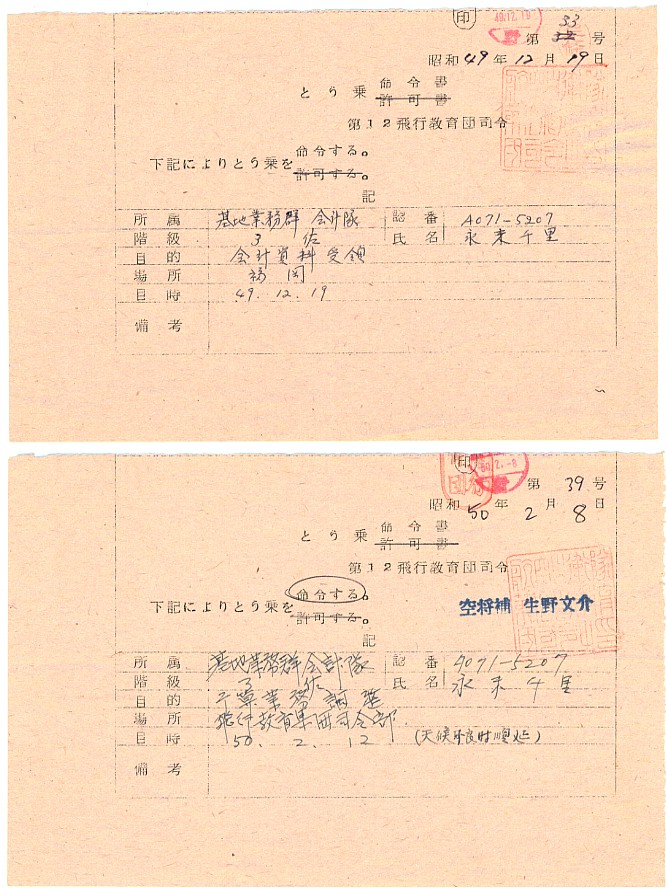 印
49.12.19
第 33 号
昭和49年12月19日
とう乗 命令書
許可書
第12飛行教育団司令
下記によりとう乗を 命令する。
許可する。
記
所属 基地業務群 会計隊 認番 A071-5207
階級 3 佐 氏名 永末千里
目的 会計資料受領
場所 福岡
日時 49.12.19
備考
印
50.2.-8
第 39 号
昭和50年2月8日
とう乗 命令書
許可書
第12飛行教育団司令
下記によりとう乗を 命令する。
許可する。
空将補 生野文介
記
所属 基地業務群会計隊 認番 A071-5207
階級 3 佐 氏名 永末千里
目的 予算業務調整
場所 飛行教育集団司令部
日時 50.2.12 (天候不良時順延)
備考